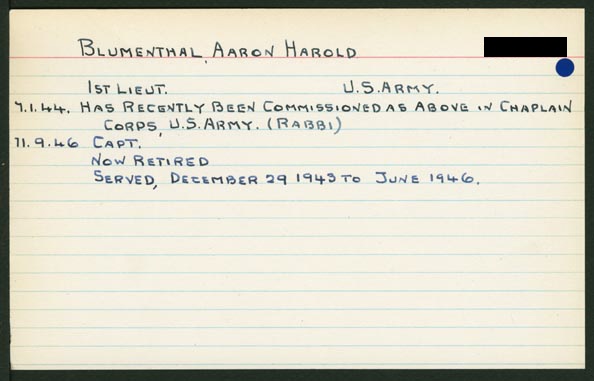 BLUMENTHAL, AARON HAROLD
1ST LIEUT. U.S. ARMY.
7.1.44. HAS RECENTLY BEEN COMMISSIONED AS ABOVE IN CHAPLAIN
CORPS, U.S. ARMY. (RABBI)
11.9.46 CAPT.
NOW RETIRED
SERVED, DECEMBER 29 1943 TO JUNE 1946.